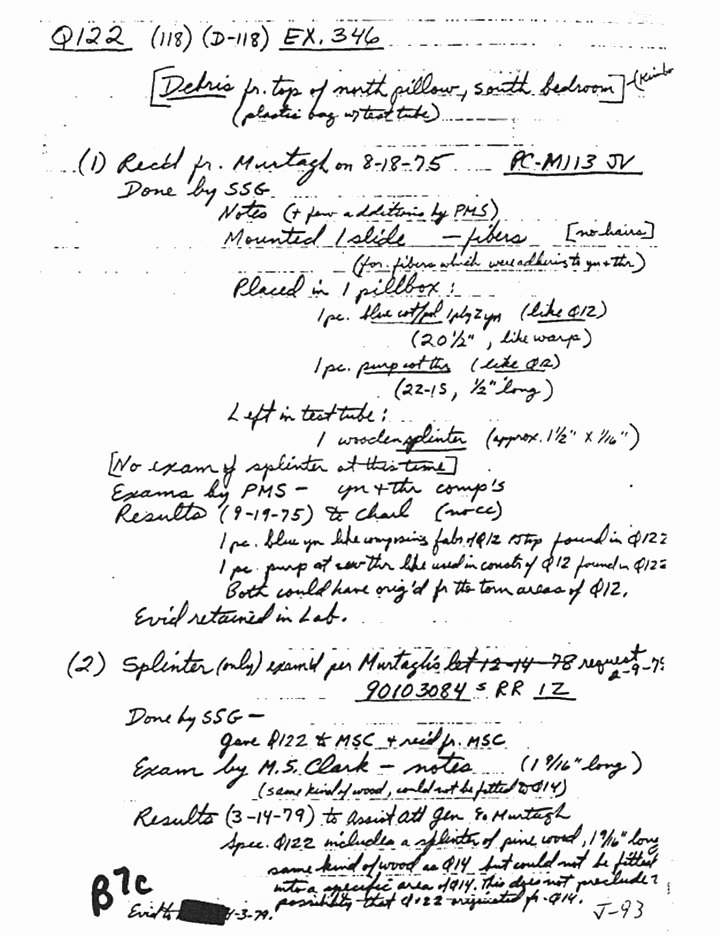 Q122 (118) (D-118) EX. 346
[Debris fr. top of north pillow, south bedroom]
(plastic bag w/test tube)
(1) Rec'd fr. Murtagh on 8-18-75 PC-M113 JV
Done by SSG
Notes (+ few additions by PMS)
Mounted 1 slide — fibers [no hairs]
(for fibers which were adhering to yn + thr)
Placed in 1 pillbox:
1 pc. blue cot/pol 1ply Z yn (like Q12)
(20 1/2", like warp)
1 pc. purp cot thr (like Q12)
(22-15, 1/2" long)
Left in test tube:
1 wooden splinter (approx. 1 1/2" x 1/16")
[No exam of splinter at this time]
Exams by PMS — yn + thr comp's
Results (9-19-75) to Charl (no cc)
1 pc. blue yn like composing fab of Q12 found in Q122
1 pc. purp sew thr like used in constr of Q12 found in Q122
Both could have orig'd fr the torn areas of Q12.
Evid retained in Lab.
(2) Splinter (only) exam'd per Murtagh's let 12-14-78 request 2-9-79
90103084 S RR IZ
Done by SSG —
gave Q122 to MSC + rec'd fr. MSC
Exam by M.S. Clark — notes (1 9/16" long)
(same kind of wood, could not be fitted to Q14)
Results (3-14-79) to Assist Att Gen & Murtagh
Spec. Q122 includes a splinter of pine wood, 1 9/16" long
same kind of wood as Q14 but could not be fitted
into a specific area of Q14. This does not preclude
possibility that Q122 originated fr. Q14.
B7C
Evid to 4-3-79.
J-93